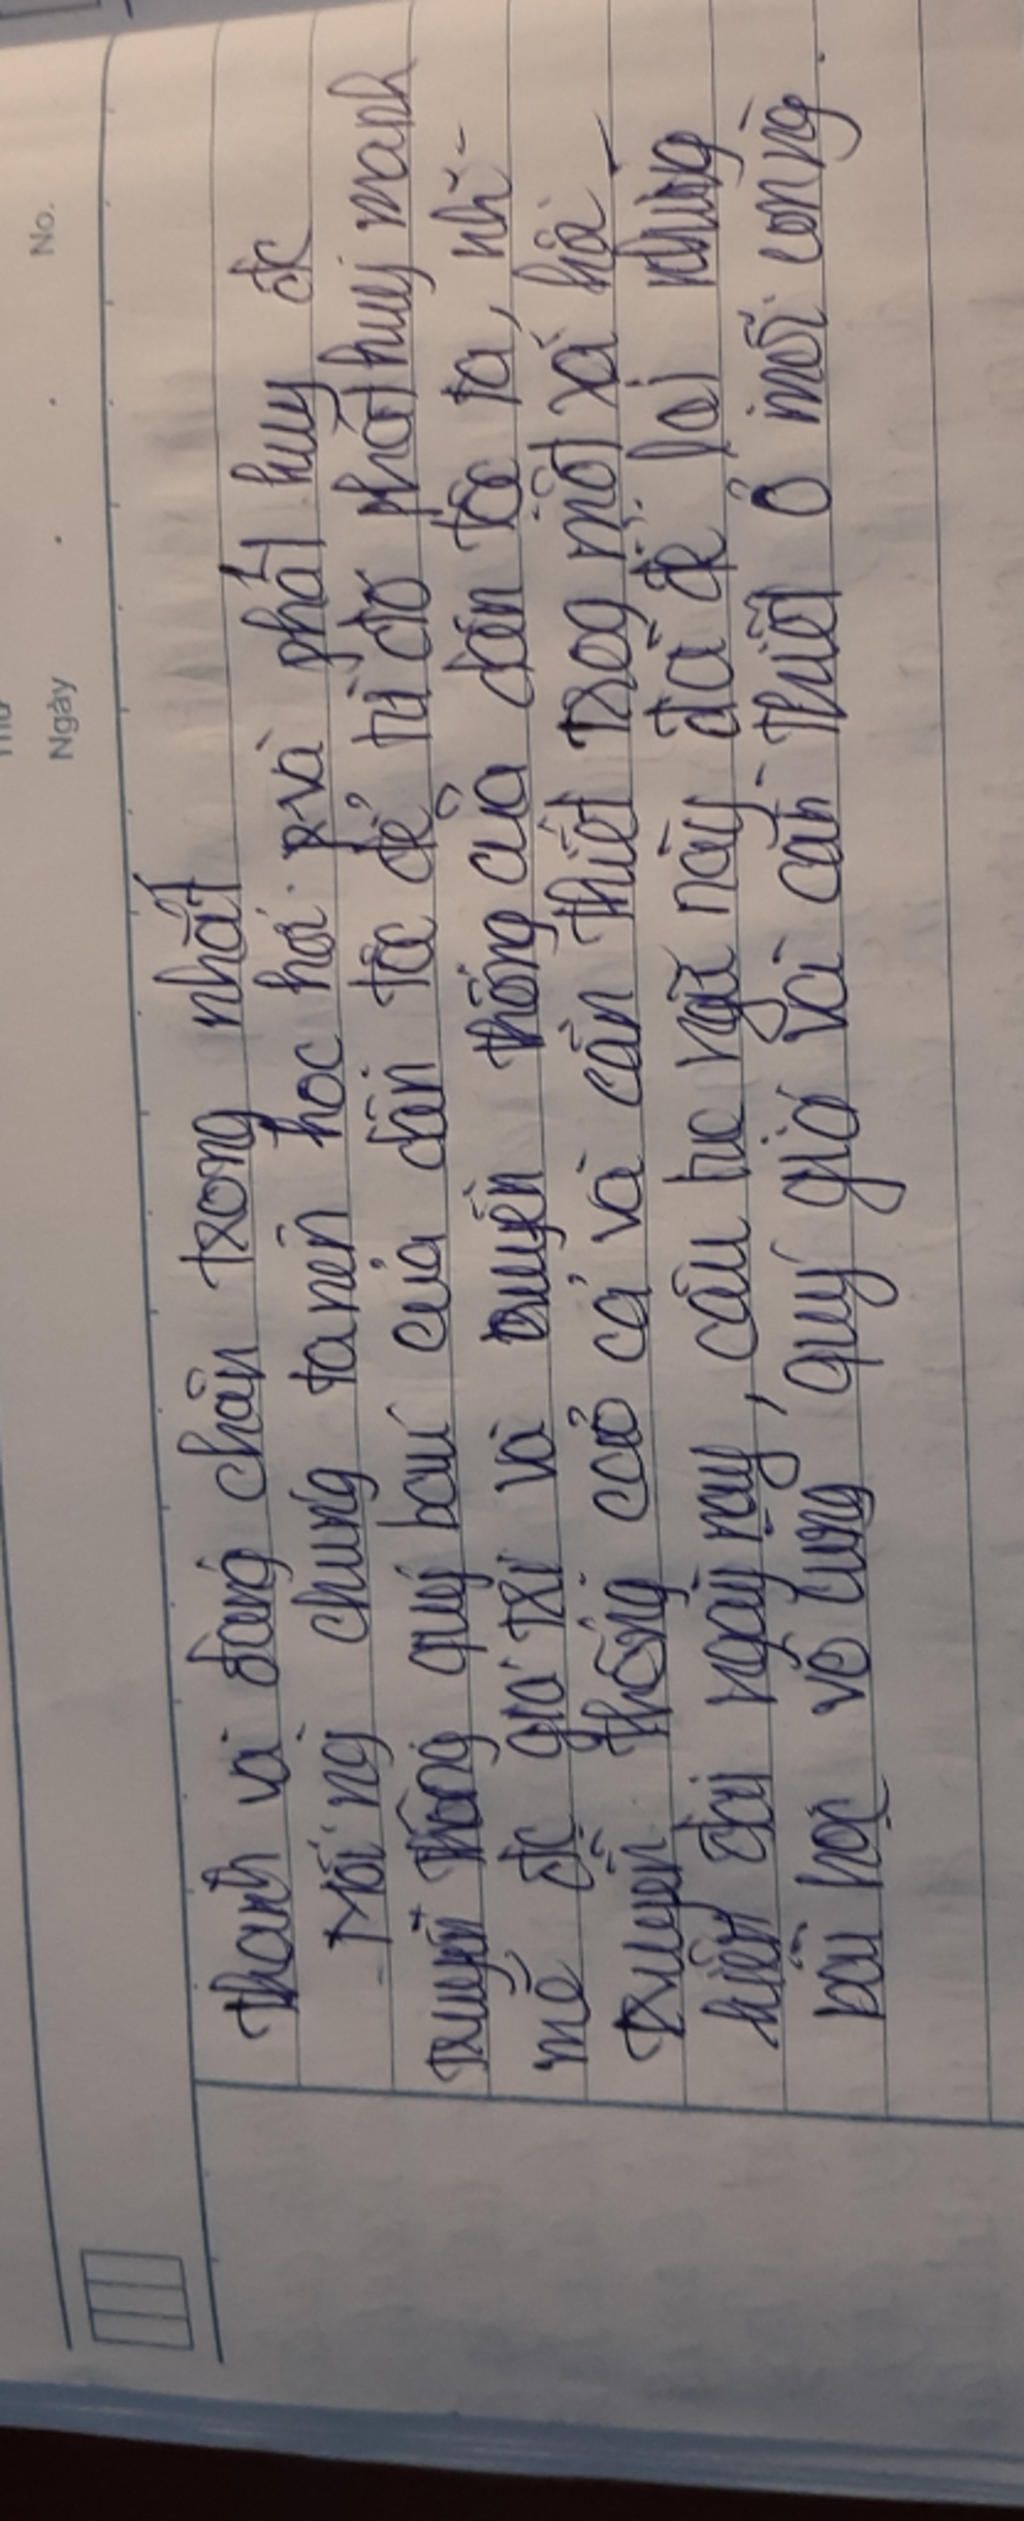 No.
Ngày
thành và đáng chân trọng nhất
- Mỗi ng chúng ta nên học hỏi và phát huy đc
truyền thống quý báu của dân tộc để từ đó phát huy mạnh
mẽ đc giá trị và truyền thống của dân tộc ta, nh
truyền thống cao cả và cần thiết trog một xã hội
hiện đại ngày nay, câu tục ngữ này đã để lại nhưng
bài học vô cùng quý giá và cần thiết ở mỗi con ng